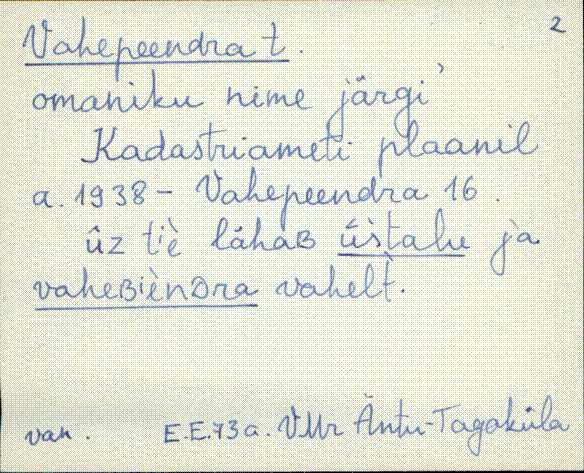 2
Vahepeendra t.
omaniku nime järgi
Kadastriameti plaanil
a. 1938 – Vahepeendra 16.
ûz tiè lähaʙ ûštalu ja
vaheʙiènᴅra vahelt.
van. E.E.73 a. VMr Äntu-Tagaküla